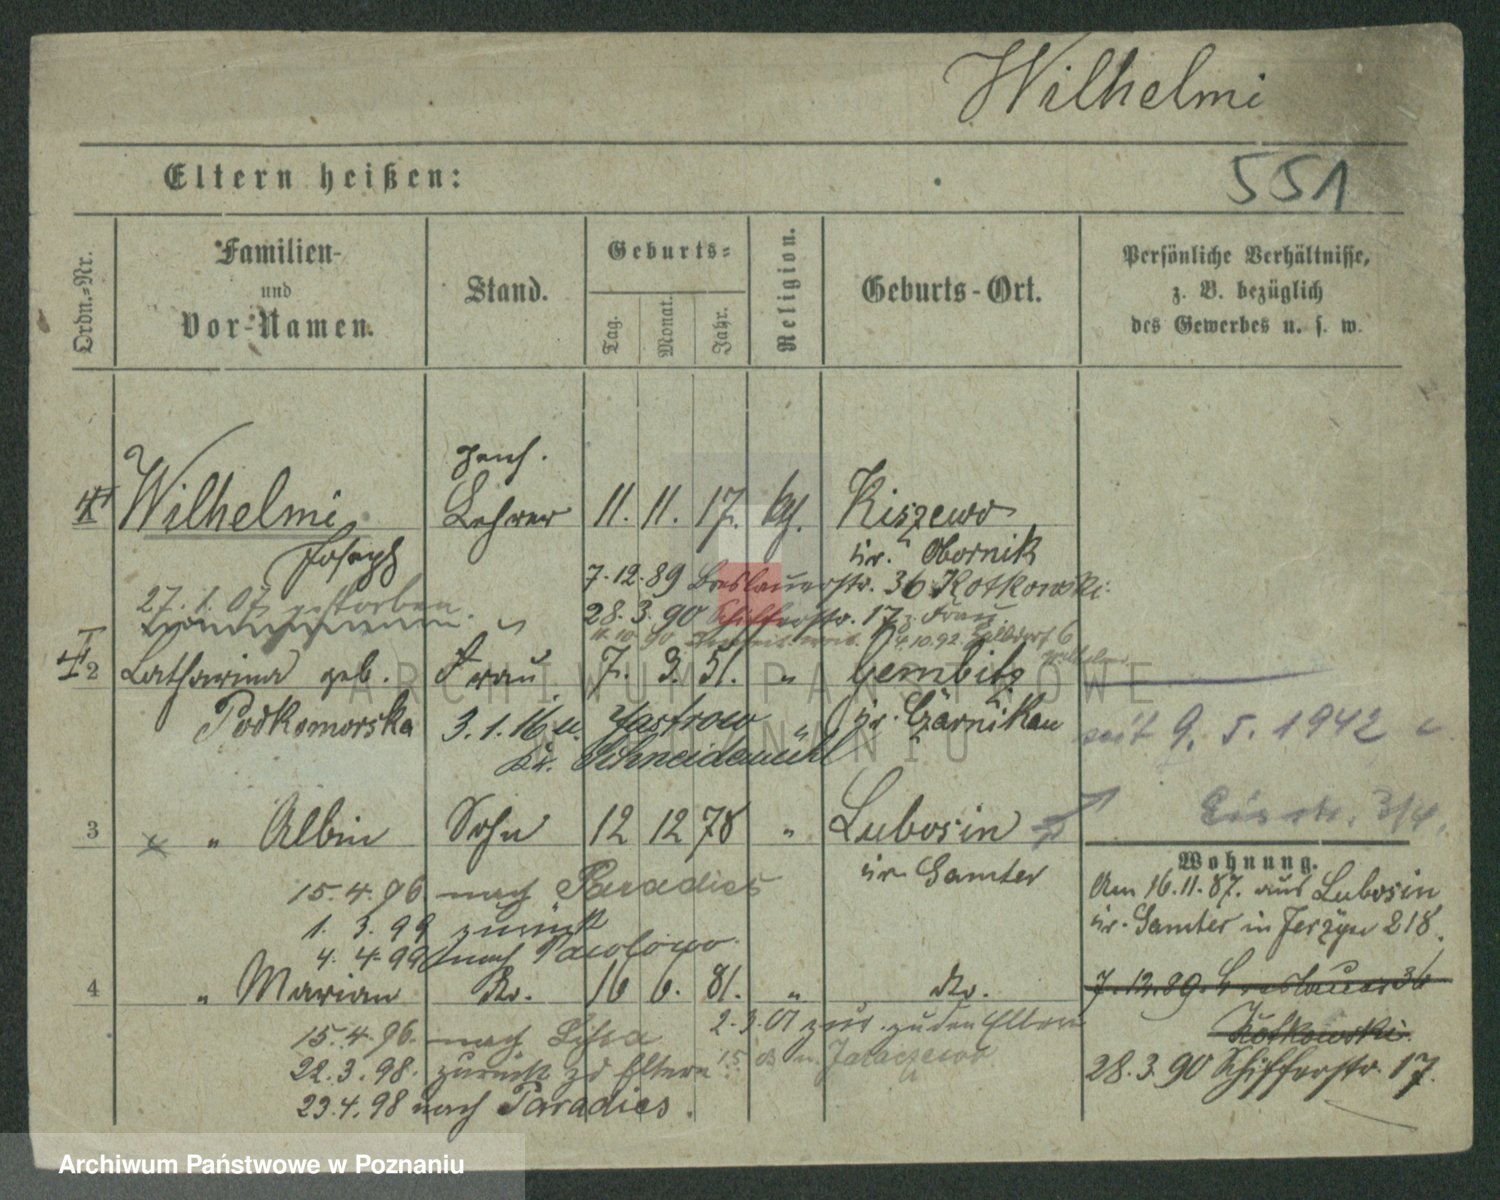 Wilhelmi
Eltern heißen:
551
Ordn.=Nr.
Familien-
und
Vor-Namen.
Stand.
Geburts=
Tag.
Monat.
Jahr.
Religion.
Geburts-Ort.
Persönliche Verhältnisse,
z. B. bezüglich
des Gewerbes u. s. w.
Wilhelmi
Joseph
pens.
Lehrer
11. 11. 17. kth.
Kiszewo
Kr. Obornik
7.12.89 Breslauerstr. 36 Kotkowski
27.1.07 gestorben.
28.3.90 Schifferstr. 17 z. Frau
2 Catharina geb. Frau 7. 3. 51. " Gembitz
Podkomorska
3.1.16 n. Jastrow
Kr. Czarnikau
Kr. Schneidemühl
seit 9. 5. 1942
3 " Albin Sohn 12 12 78 " Lubosin
Kr. Samter
15.4.96 nach Paradies
1. 3. 99 zurück
4. 4. 99 nach
4 " Marian do. 16 6. 81. " do.
15.4.96. nach Lissa
2.3.01 zur. zu den Eltern
22.3.98. zurück zd Eltern
15 n. Jaraczewo
23.4.98 nach Paradies.
Wohnung.
Am 16.11.87. aus Lubosin
Kr. Samter in Jerzyce 218.
7.12.89. Breslauer 36
Kotkowski
28.3.90 Schifferstr. 17.
ARCHIWUM PAŃSTWOWE
W POZNANIU
Archiwum Państwowe w Poznaniu